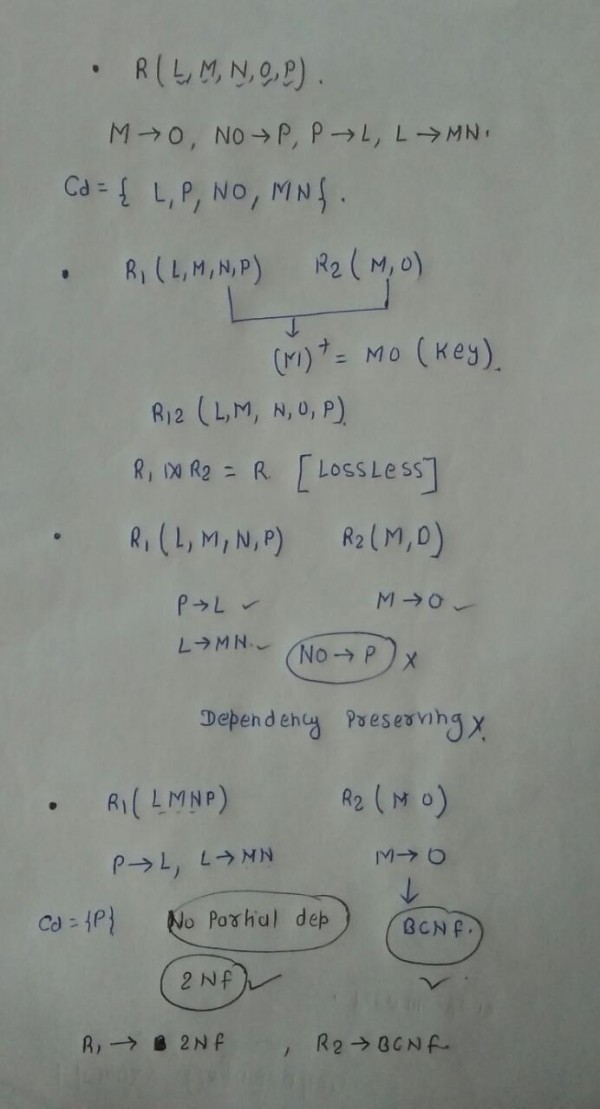 • R(L, M, N, O, P).
M→O, NO→P, P→L, L→MN.
Cd = { L, P, NO, MN}.
• R1 (L, M, N, P) R2 (M, O)
(M)+ = MO (Key).
R12 (L, M, N, O, P).
R1 ⋈ R2 = R. [LossLess]
• R1 (L, M, N, P) R2 (M, O)
P→L ✓ M→O ✓
L→MN. ✓ NO→P X
Dependency Preserving X.
• R1 (LMNP) R2 (M O)
P→L, L→MN M→O
↓
Cd = {P} No Partial dep BCNF.
2NF ✓ ✓
R1 → 2NF , R2 → BCNF